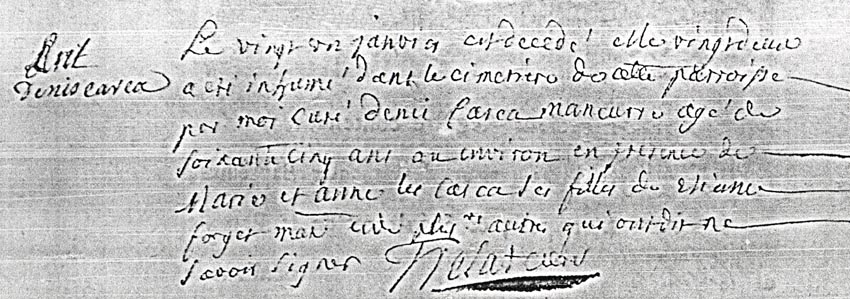 Ent
Denis carca
Le vingt un janvier est decedé et le vingt deux
a eté inhumé dans le cimetiere de cette parroisse
par moi curé denis Carca manœuvre agé de
soixante cinq ans ou environ en presence de
Marie et anne les carca ses filles de etienne
forget et autres qui ont dit ne
savoir signer